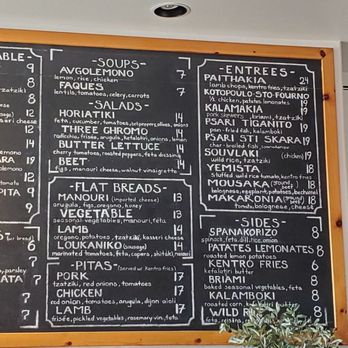 ABLE-
9
9
9
9
12
12
9
19
9
9
-SOUPS-
AVGOLEMONO 7
lemon, rice, chicken
FAQUES 7
lentils, tomatoes, celery, carrots
-SALADS-
HORIATIKI 14
feta, cucumber, tomatoes, bell peppers, olives, onions
THREE CHROMO 14
radicchio, frisee, arugula, kefalotiri, onions, lemon
BUTTER LETTUCE 14
cherry tomatoes, roasted peppers, feta dressing
BEET 14
figs, manouri cheese, walnut vinaigrette
-FLAT BREADS-
MANOURI (imported cheese) 13
arugula, figs, oregano, honey
VEGETABLE 13
seasonal vegetables, manouri, feta
LAMB 14
oregano, potatoes, tzatziki, kasseri cheese
LOUKANIKO (sausage) 14
marinated tomatoes, feta, capers,
-PITAS- (Served w/ Kentro fries)
PORK 14
tzatziki, red onions, tomatoes
CHICKEN 14
red onion, tomatoes, arugula, dijon aioli
LAMB 17
frisée, pickled vegetables, rosemary vin, feta
-ENTREES-
PAITHAKIA 24
lamb chops, kentro fries, tzatziki
KOTOPOULO STO FOURNO
1/2 chicken, potatoes lemonates 19
KALAMAKIA 19
pork skewers, briami, tzatziki
PSARI TIGANITO 19
pan-fried fish, kalamboki
PSARI STI SKARA 19
char-broiled fish, spanakorizo
SOUVLAKI (chicken) 19
wild rice, tzatziki
YEMISTA 18
Stuffed wild rice tomato, kentro fries
MOUSAKA 18
bolognese, eggplant, potatoes, bechamel
MAKARONIA 18
tomato, bolognese, cheese
-SIDES-
SPANAKORIZO 8
spinach, feta, dill, rice, onion
PATATES LEMONATES 8
roasted lemon potatoes
KENTRO FRIES 6
kefalotiri butter
BRIAMI 8
baked seasonal vegetables, feta
KALAMBOKI 8
roasted corn, butter
WILD RICE 8